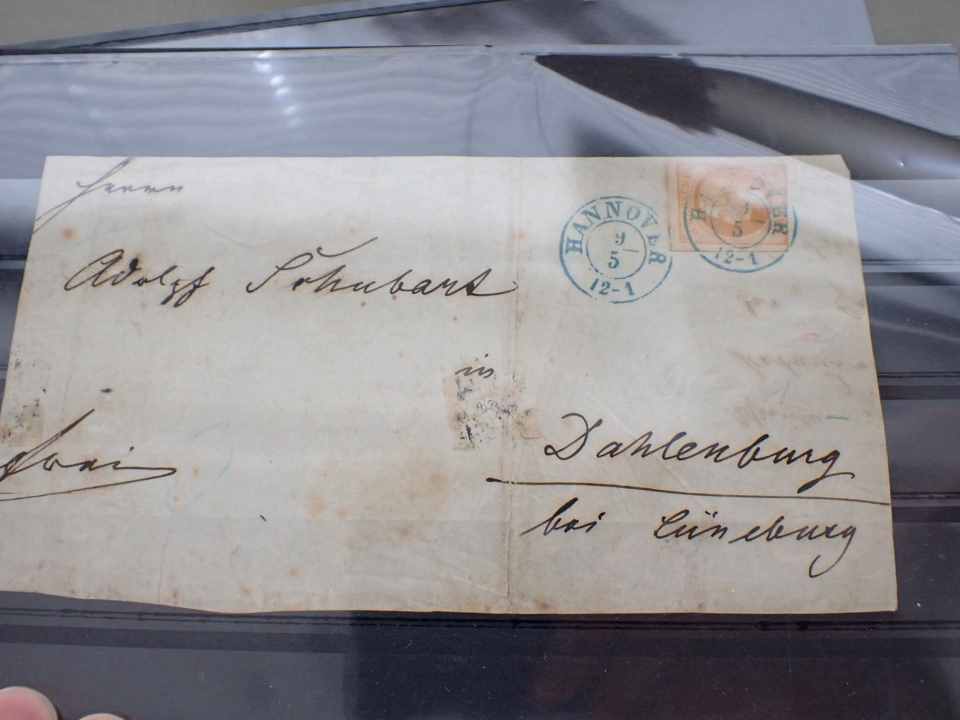 Herrn
Adolph Schubart
in
Dahlenburg
bei Lüneburg
frei
HANNOVER
9
5
12-1
H VER
9
5
12-1